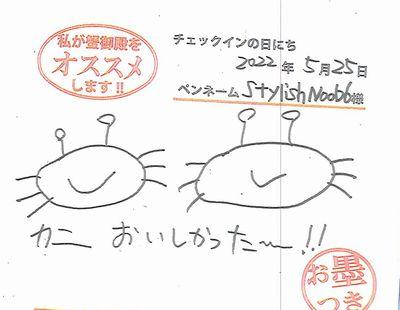 私が蟹御殿を
オススメ
します!!
チェックインの日にち
2022年5月25日
ペンネーム StylishNoob6様
カニ おいしかった〜!!
お墨
つき